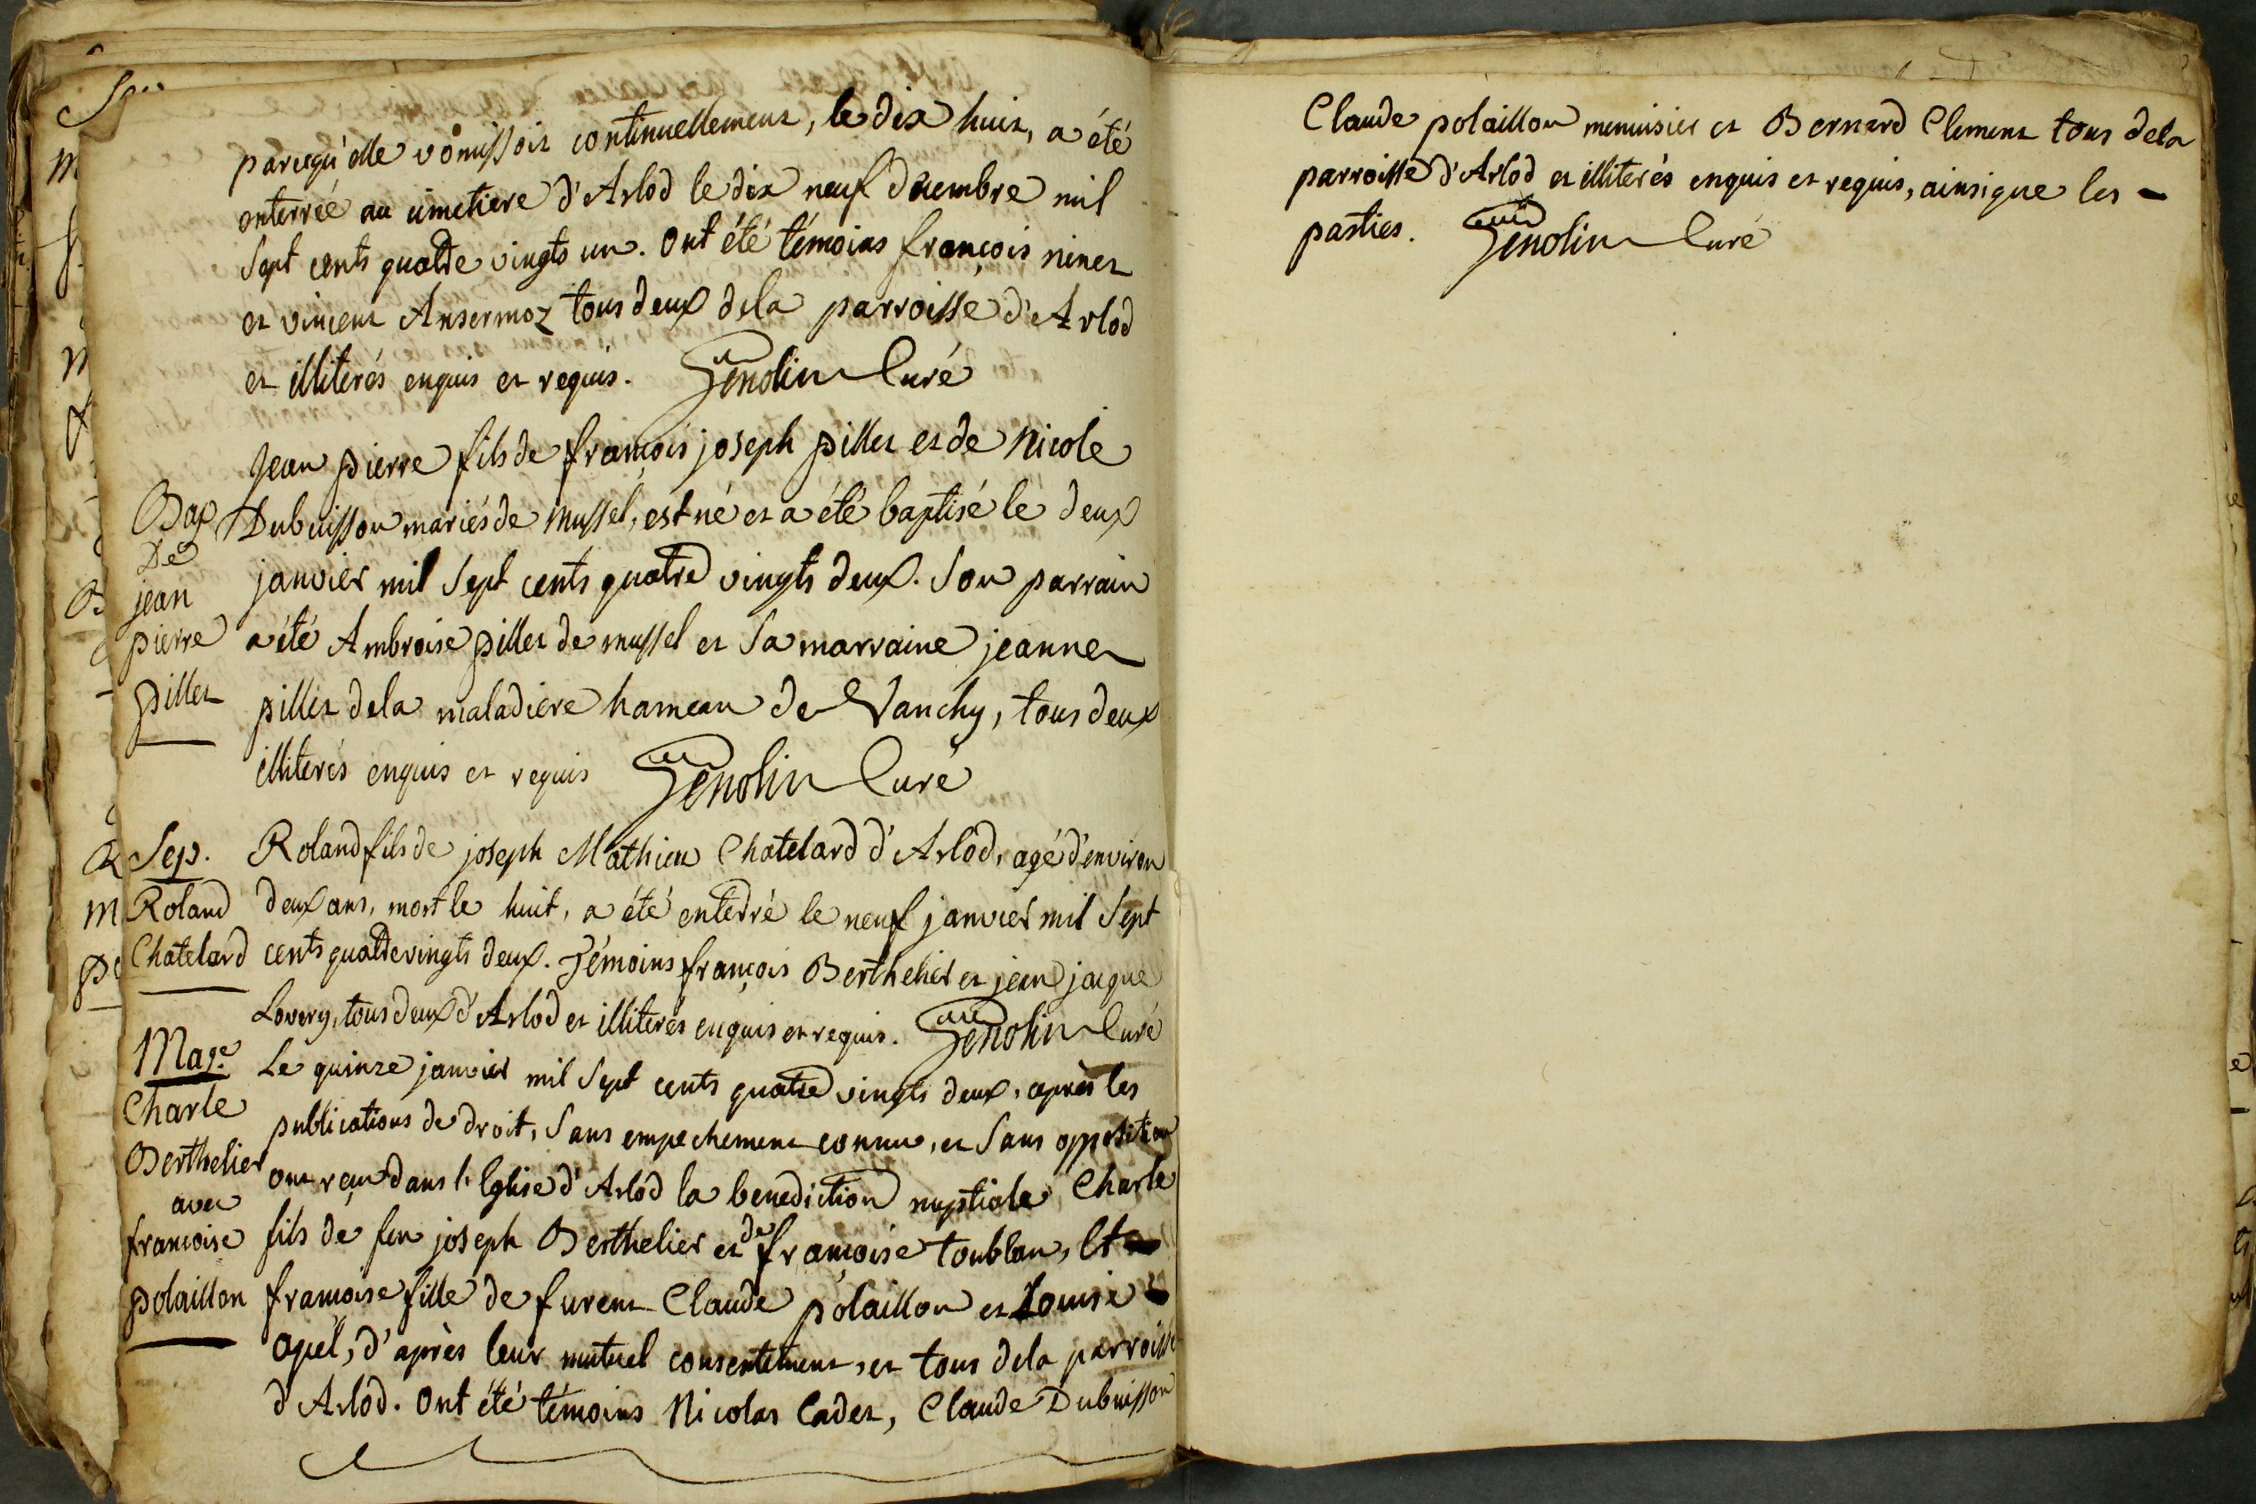 parcequ'elle vomissoit continuellement, le dix huit, a été
enterrée au cimetiere d'Arlod le dix neuf décembre mil
Sept cents quatre vingts un. Ont été témoins françois ninet
et vincent Ansermoz tous deux dela parroisse d'Arlod
et illiterés enquis et requis. Genolin Curé
Bap
De
jean
pierre
pillet
Jean pierre fils de françois joseph pillet et de Nicole
Dubuisson mariés de mussel, est né et a été baptisé le deux
janvier mil Sept cents quatre vingts deux. Son parrain
a été Ambroise pillet de mussel et Sa marraine jeanne
pillet dela maladiere hameau de Vanchy, tous deux
illiterés enquis et requis Genolin Curé
Sep.
Roland
Chatelard
Roland fils de joseph Mathieu Chatelard d'Arlod, agé d'environ
deux ans, mort le huit, a été enterré le neuf janvier mil Sept
cents quatre vingts deux. Témoins françois Berthelier et jean jacque
Lovery, tous deux d'Arlod et illiterés enquis et requis. Genolin Curé
Mage.
Charle
Berthelier
avec
francoise
polaillon
Le quinze janvier mil Sept cents quatre vingts deux, après les
publications de droit, Sans empechement connu, et Sans opposition
ont reçu dans l'Eglise d'Arlod la benediction nuptiale Charle
fils de feu joseph Berthelier et de françoise toublan, Et
francoise fille de furent Claude polaillon et Louise
apel, d'après leur mutuel consentement, et tous dela parroisse
d'Arlod. Ont été témoins Nicolas Cadet, Claude Dubuisson
Claude polaillon menuisier et Bernard Clement tous dela
parroisse d'Arlod et illiterés enquis et requis, ainsi que les -
parties. Genolin Curé